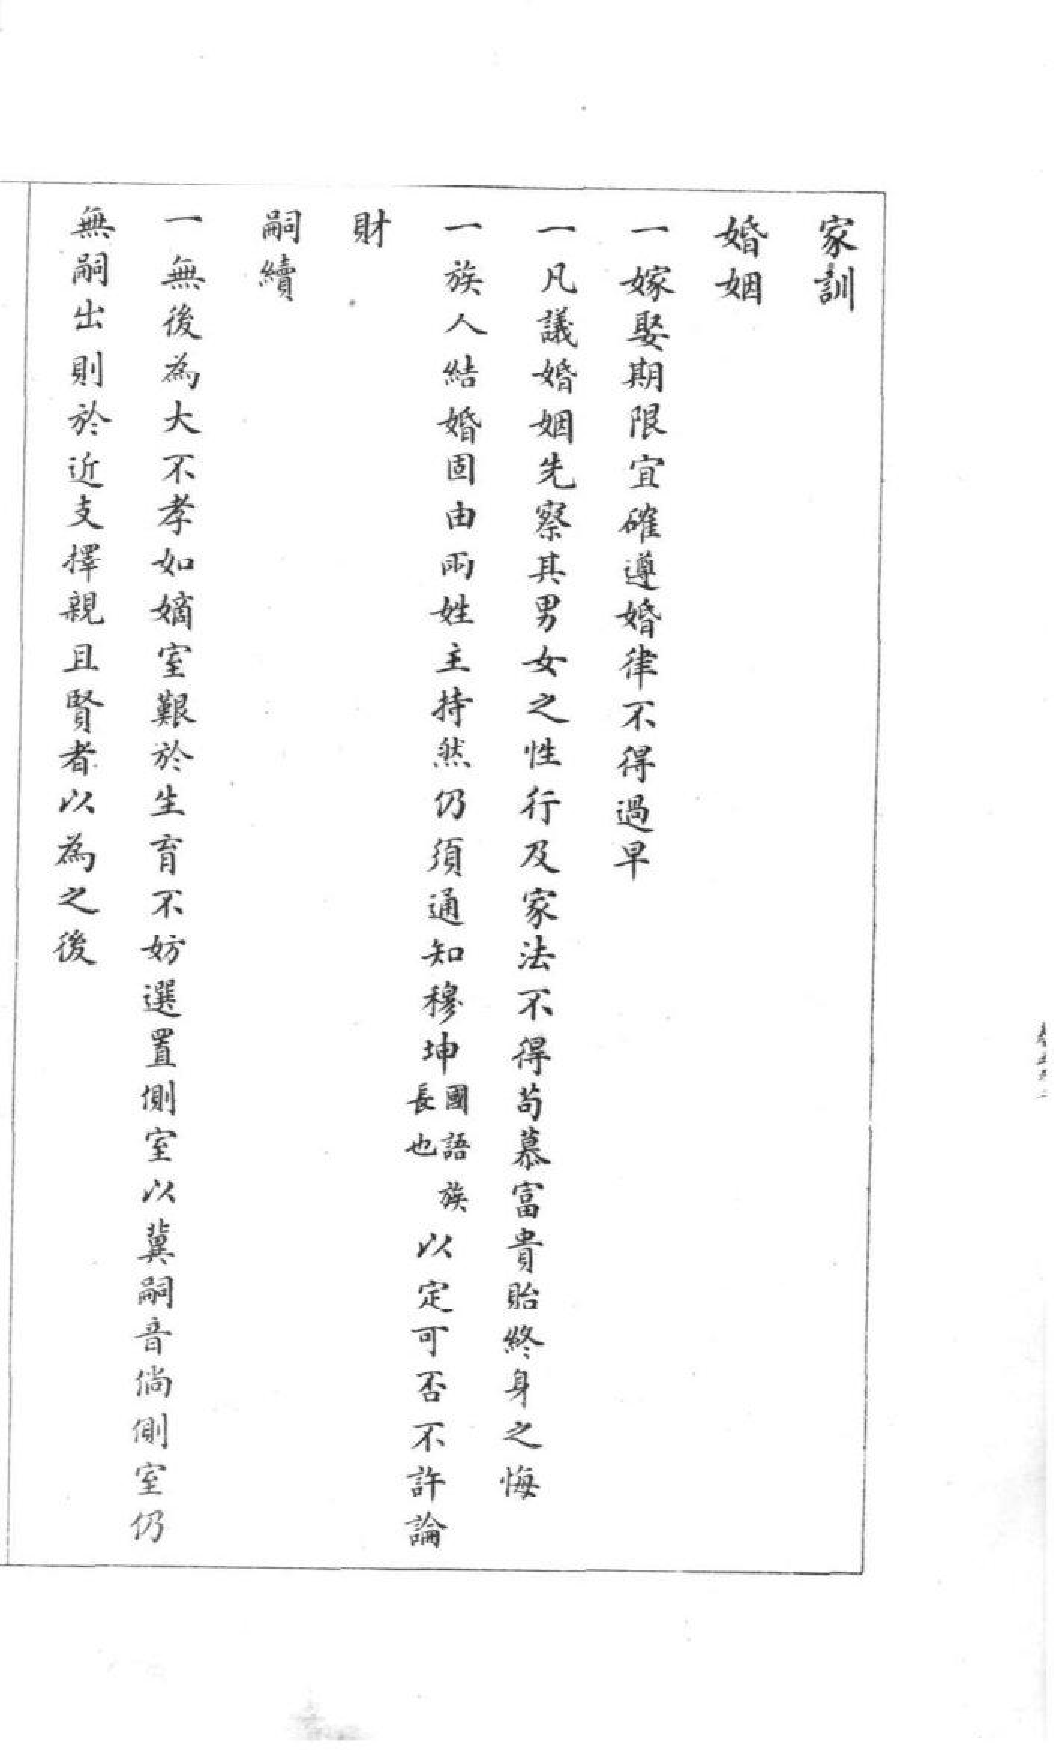 家訓
婚姻
一嫁娶期限宜確遵婚律不得過早
一凡議婚姻先察其男女之性行及家法不得苟慕富貴貽終身之悔
一族人結婚固由兩姓主持然仍須通知穆坤國語族長也以定可否不許論
財
嗣續
一無後為大不孝如嫡室艱於生育不妨選置側室以冀嗣音倘側室仍
無嗣出則於近支擇親且賢者以為之後